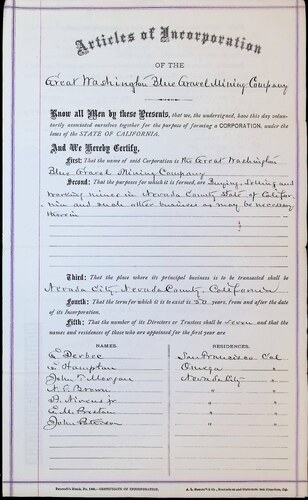 Articles of Incorporation
OF THE
Great Washington Blue Gravel Mining Company
Know all Men by these Presents, that we, the undersigned, have this day volun-
tarily associated ourselves together for the purpose of forming a CORPORATION, under
the laws of the STATE OF CALIFORNIA.
And We Hereby Certify,
First: That the name of said Corporation is the Great Washington
Blue Gravel Mining Company
Second: That the purposes for which it is formed, are Buying, Selling and
working mines in Nevada County State of Califor-
nia and such other business as may be necessary
therein
Third: That the place where its principal business is to be transacted shall be
Nevada City Nevada County, California
Fourth: That the term for which it is to exist is 50 years, from and after the date
of its Incorporation.
Fifth: That the number of its Directors or Trustees shall be seven and that the
names and residences of those who are appointed for the first year are
NAMES. RESIDENCES.
Derbec San Francisco Cal
Hampton Omega "
John T. Morgan Nevada City "
Brown " "
Nivens jr " "
Preston " "
John Peterson " "
CERTIFICATE OF INCORPORATION